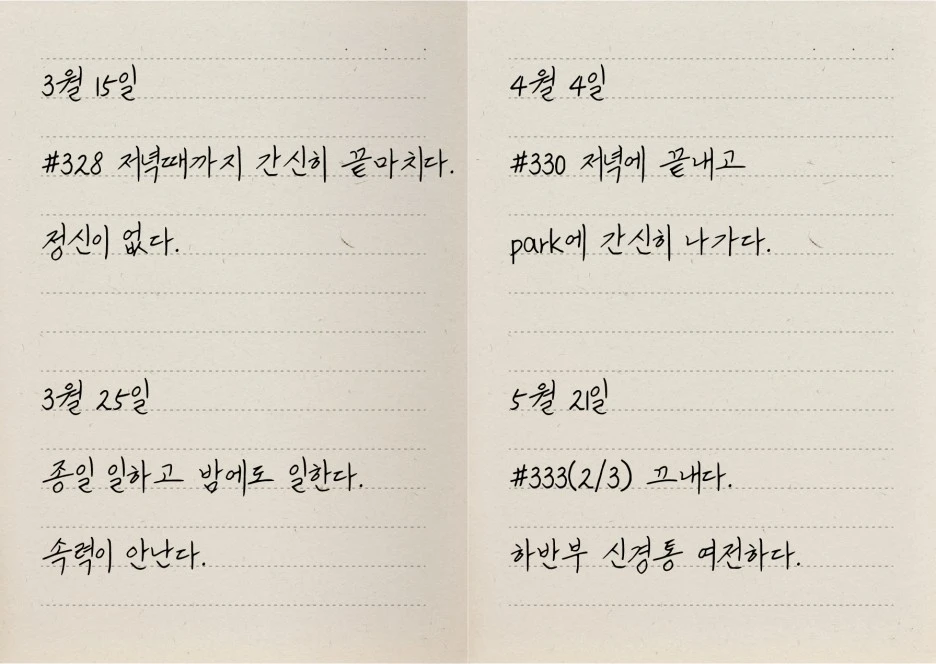 3월 15일
#328 저녁때까지 간신히 끝마치다.
정신이 없다.
3월 25일
종일 일하고 밤에도 일한다.
속력이 안난다.
4월 4일
#330 저녁에 끝내고
park에 간신히 나가다.
5월 21일
#333(2/3) 끄내다.
하반부 신경통 여전하다.